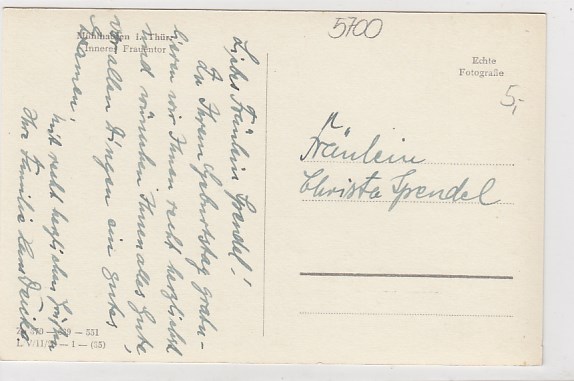 Mühlhausen i. Thür.
Inneres Frauentor
5700
Echte
Fotografie
5,-
Liebes Fräulein Sprendel!
Zu Ihrem Geburtstag gratu-
lieren wir Ihnen recht herzlichst
und wünschen Ihnen alles Gute,
vor allen Dingen ein gutes
Examen!
Mit recht herzlichen Grüßen
Ihre Familie
Fräulein
Christa Sprendel
551
L V/11/ — 1 — (35)